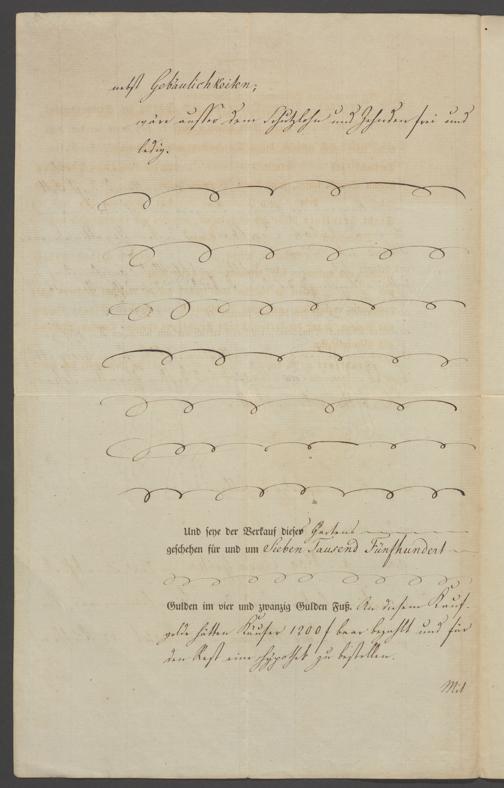 nebst Gebäulichkeiten;
wäre ausser dem Schutzlohn und Zehnden frei und
ledig.
Und seye der Verkauf dieses Gartens
geschehen für und um Sieben Tausend Fünfhundert
Gulden im vier und zwanzig Gulden Fuß. An diesem Kauf-
gelde hätten Käufer 1200 f baar bezahlt und für
den Rest eine Hypothek zu bestellen.
Mit